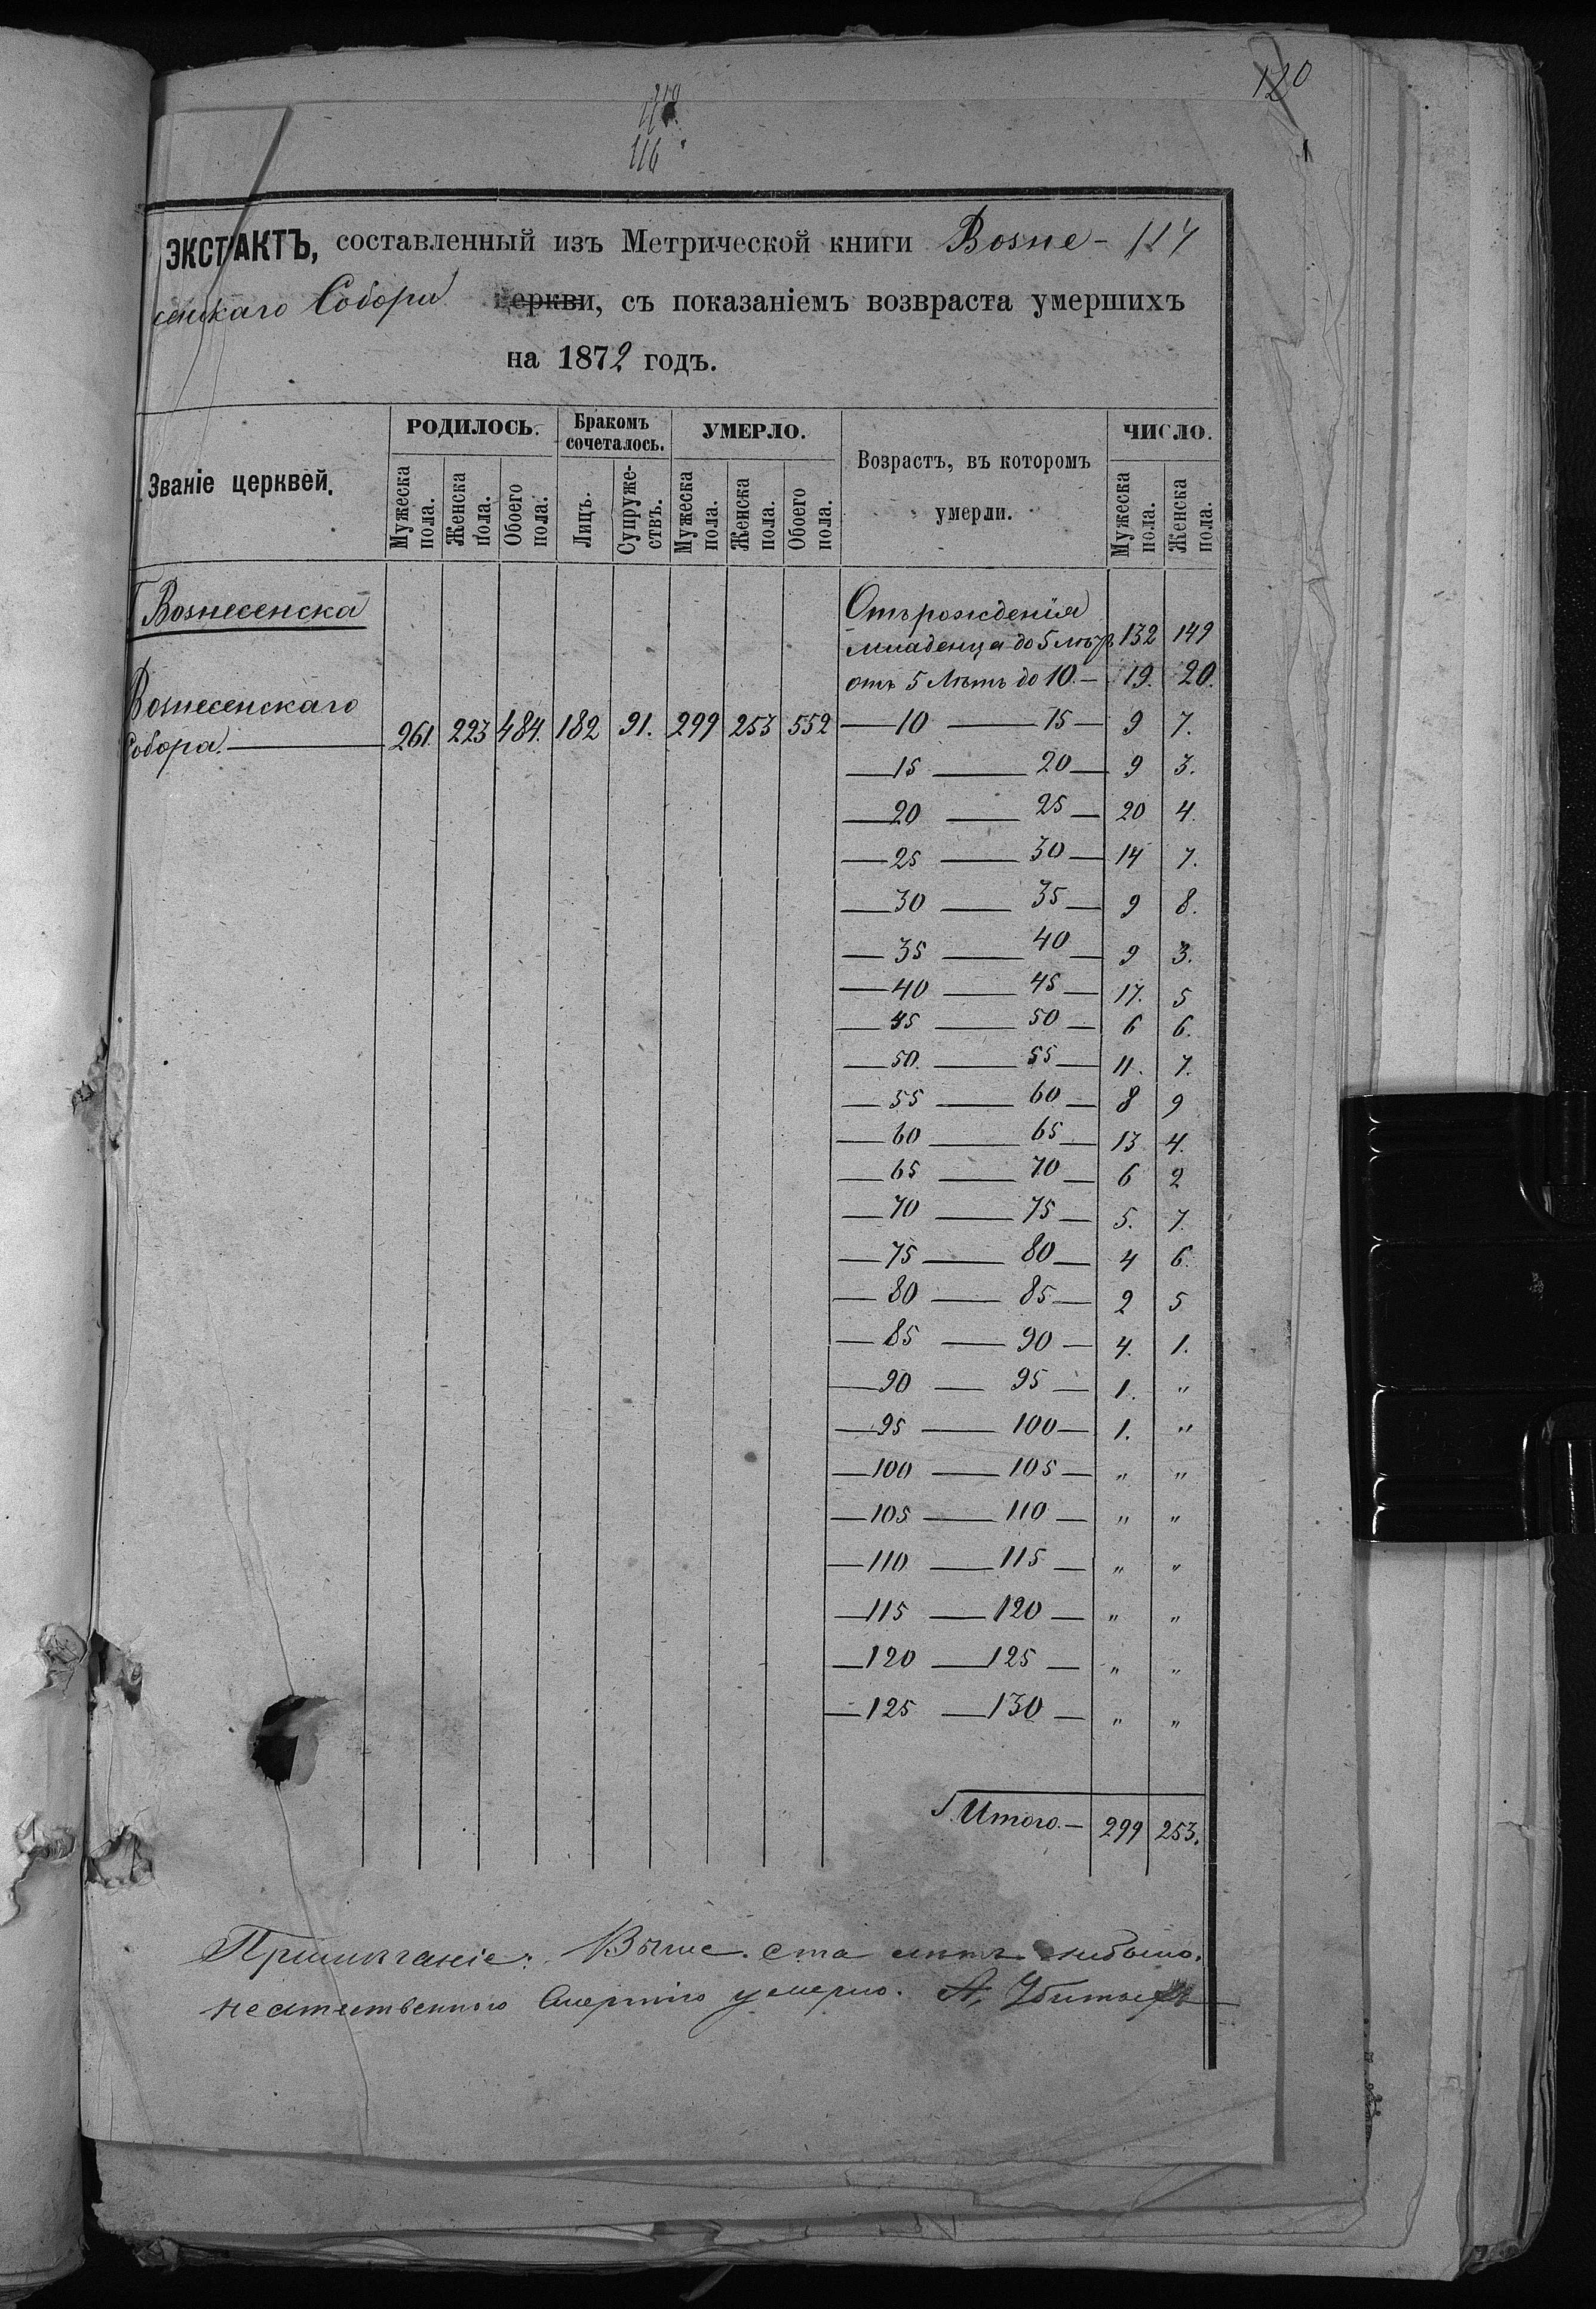 120
116
ЭКСТРАКТЪ, составленный изъ Метрической книги Возне- 117
сенскаго Собора церкви, съ показаніемъ возвраста умершихъ
на 1872 годъ.
Званіе церквей.
РОДИЛОСЬ.
Мужеска пола.
Женска пола.
Обоего пола.
Бракомъ сочеталось.
Лицъ.
Супружествъ.
УМЕРЛО.
Мужеска пола.
Женска пола.
Обоего пола.
Возрастъ, въ которомъ умерли.
ЧИСЛО.
Мужеска пола.
Женска пола.
Г Вознесенска
Вознесенскаго
Собора. 261. 223 484. 182 91. 299 253 552
Отъ рожденія
младенца до 5 лѣтъ 132 149
отъ 5 лѣтъ до 10.— 19. 20.
— 10 — 15 — 9 7.
— 15 — 20 — 9 3.
— 20 — 25 — 20 4.
— 25 — 30 — 14 7.
— 30 — 35 — 9 8.
— 35 — 40 — 9 3.
— 40 — 45 — 17. 5
— 45 — 50 — 6 6.
— 50. — 55 — 11. 7.
— 55 — 60 — 8 9
— 60 — 65 — 13 4.
— 65 — 70 — 6 2
— 70 — 75 — 5. 7.
— 75 — 80 — 4 6.
— 80 — 85 — 2 5
— 85 — 90 — 4. 1.
— 90 — 95 — 1. "
— 95 — 100 — 1. "
— 100 — 105 — " "
— 105 — 110 — " "
— 110 — 115 — " "
— 115 — 120 — " "
— 120 — 125 — " "
— 125 — 130 — " "
Итого.— 299 253.
Примѣчаніе: Выше ста лѣтъ небыло.
неестественного смертію умерло. А, Убитых